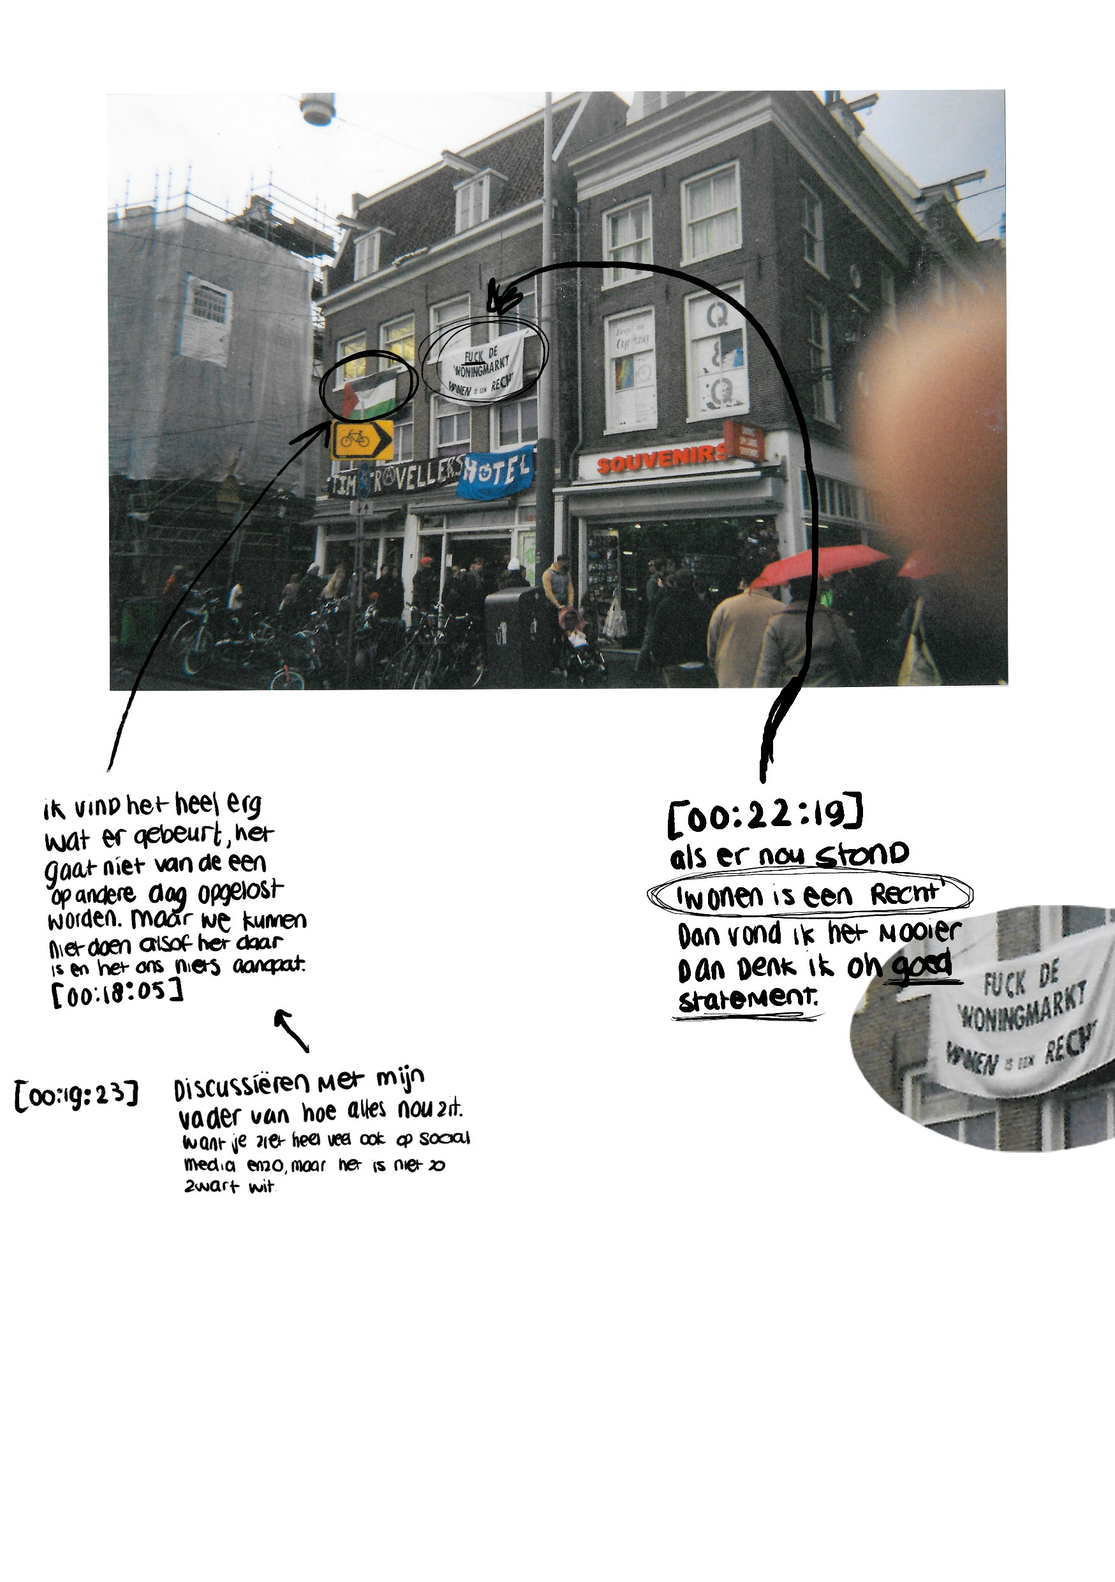 FUCK DE
WONINGMARKT
WONEN IS EEN RECHT
TIME TRAVELLERS
HOTEL
SOUVENIRS
Q
&
Q
ik vind het heel erg
wat er gebeurt, het
gaat niet van de een
op andere dag opgelost
worden. maar we kunnen
niet doen alsof het daar
is en het ons niets aangaat.
[00:18:05]
[00:19:23]
Discussiëren met mijn
vader van hoe alles nou zit.
want je ziet heel veel ook op social
media enzo, maar het is niet zo
zwart wit
[00:22:19]
als er nou stond
'wonen is een Recht'
Dan vond ik het mooier
Dan Denk ik oh goed
statement.
FUCK DE
WONINGMARKT
WONEN IS EEN RECH